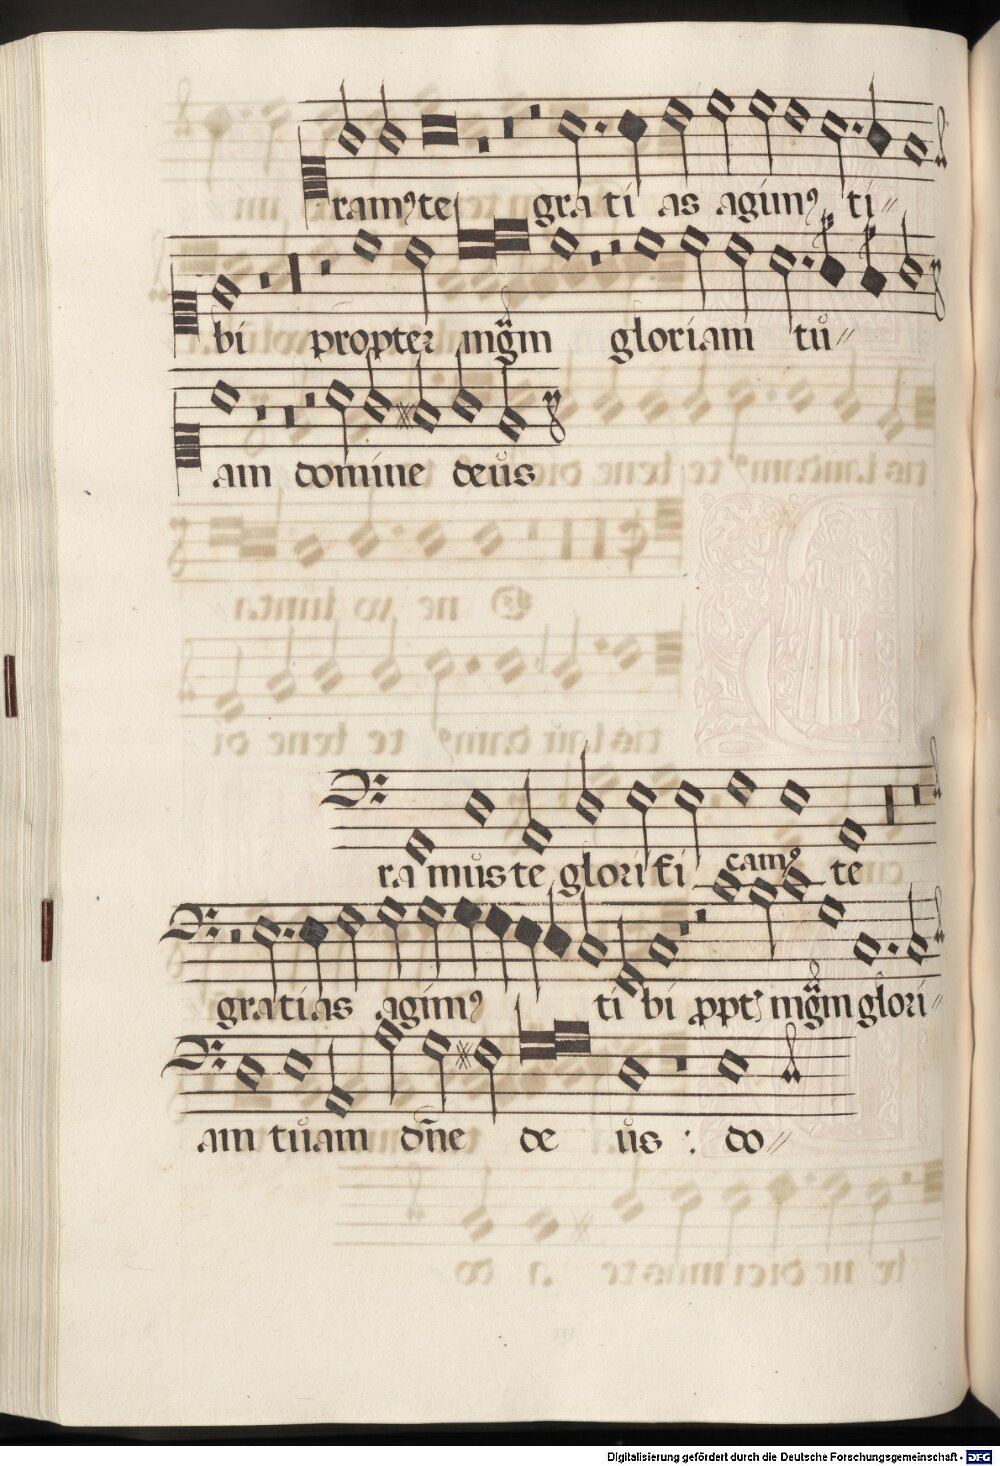 ramꝰte gra ti as agimꝰ ti〃
bi propter mgᷓm gloriam tu〃
am domine deus
ra mus te glori fi camꝰ te
grati as agimꝰ ti bi ꝓpt mgᷓm glori〃
am tuam dn̄e de us : do〃
Digitalisierung gefördert durch die Deutsche Forschungsgemeinschaft - DFG